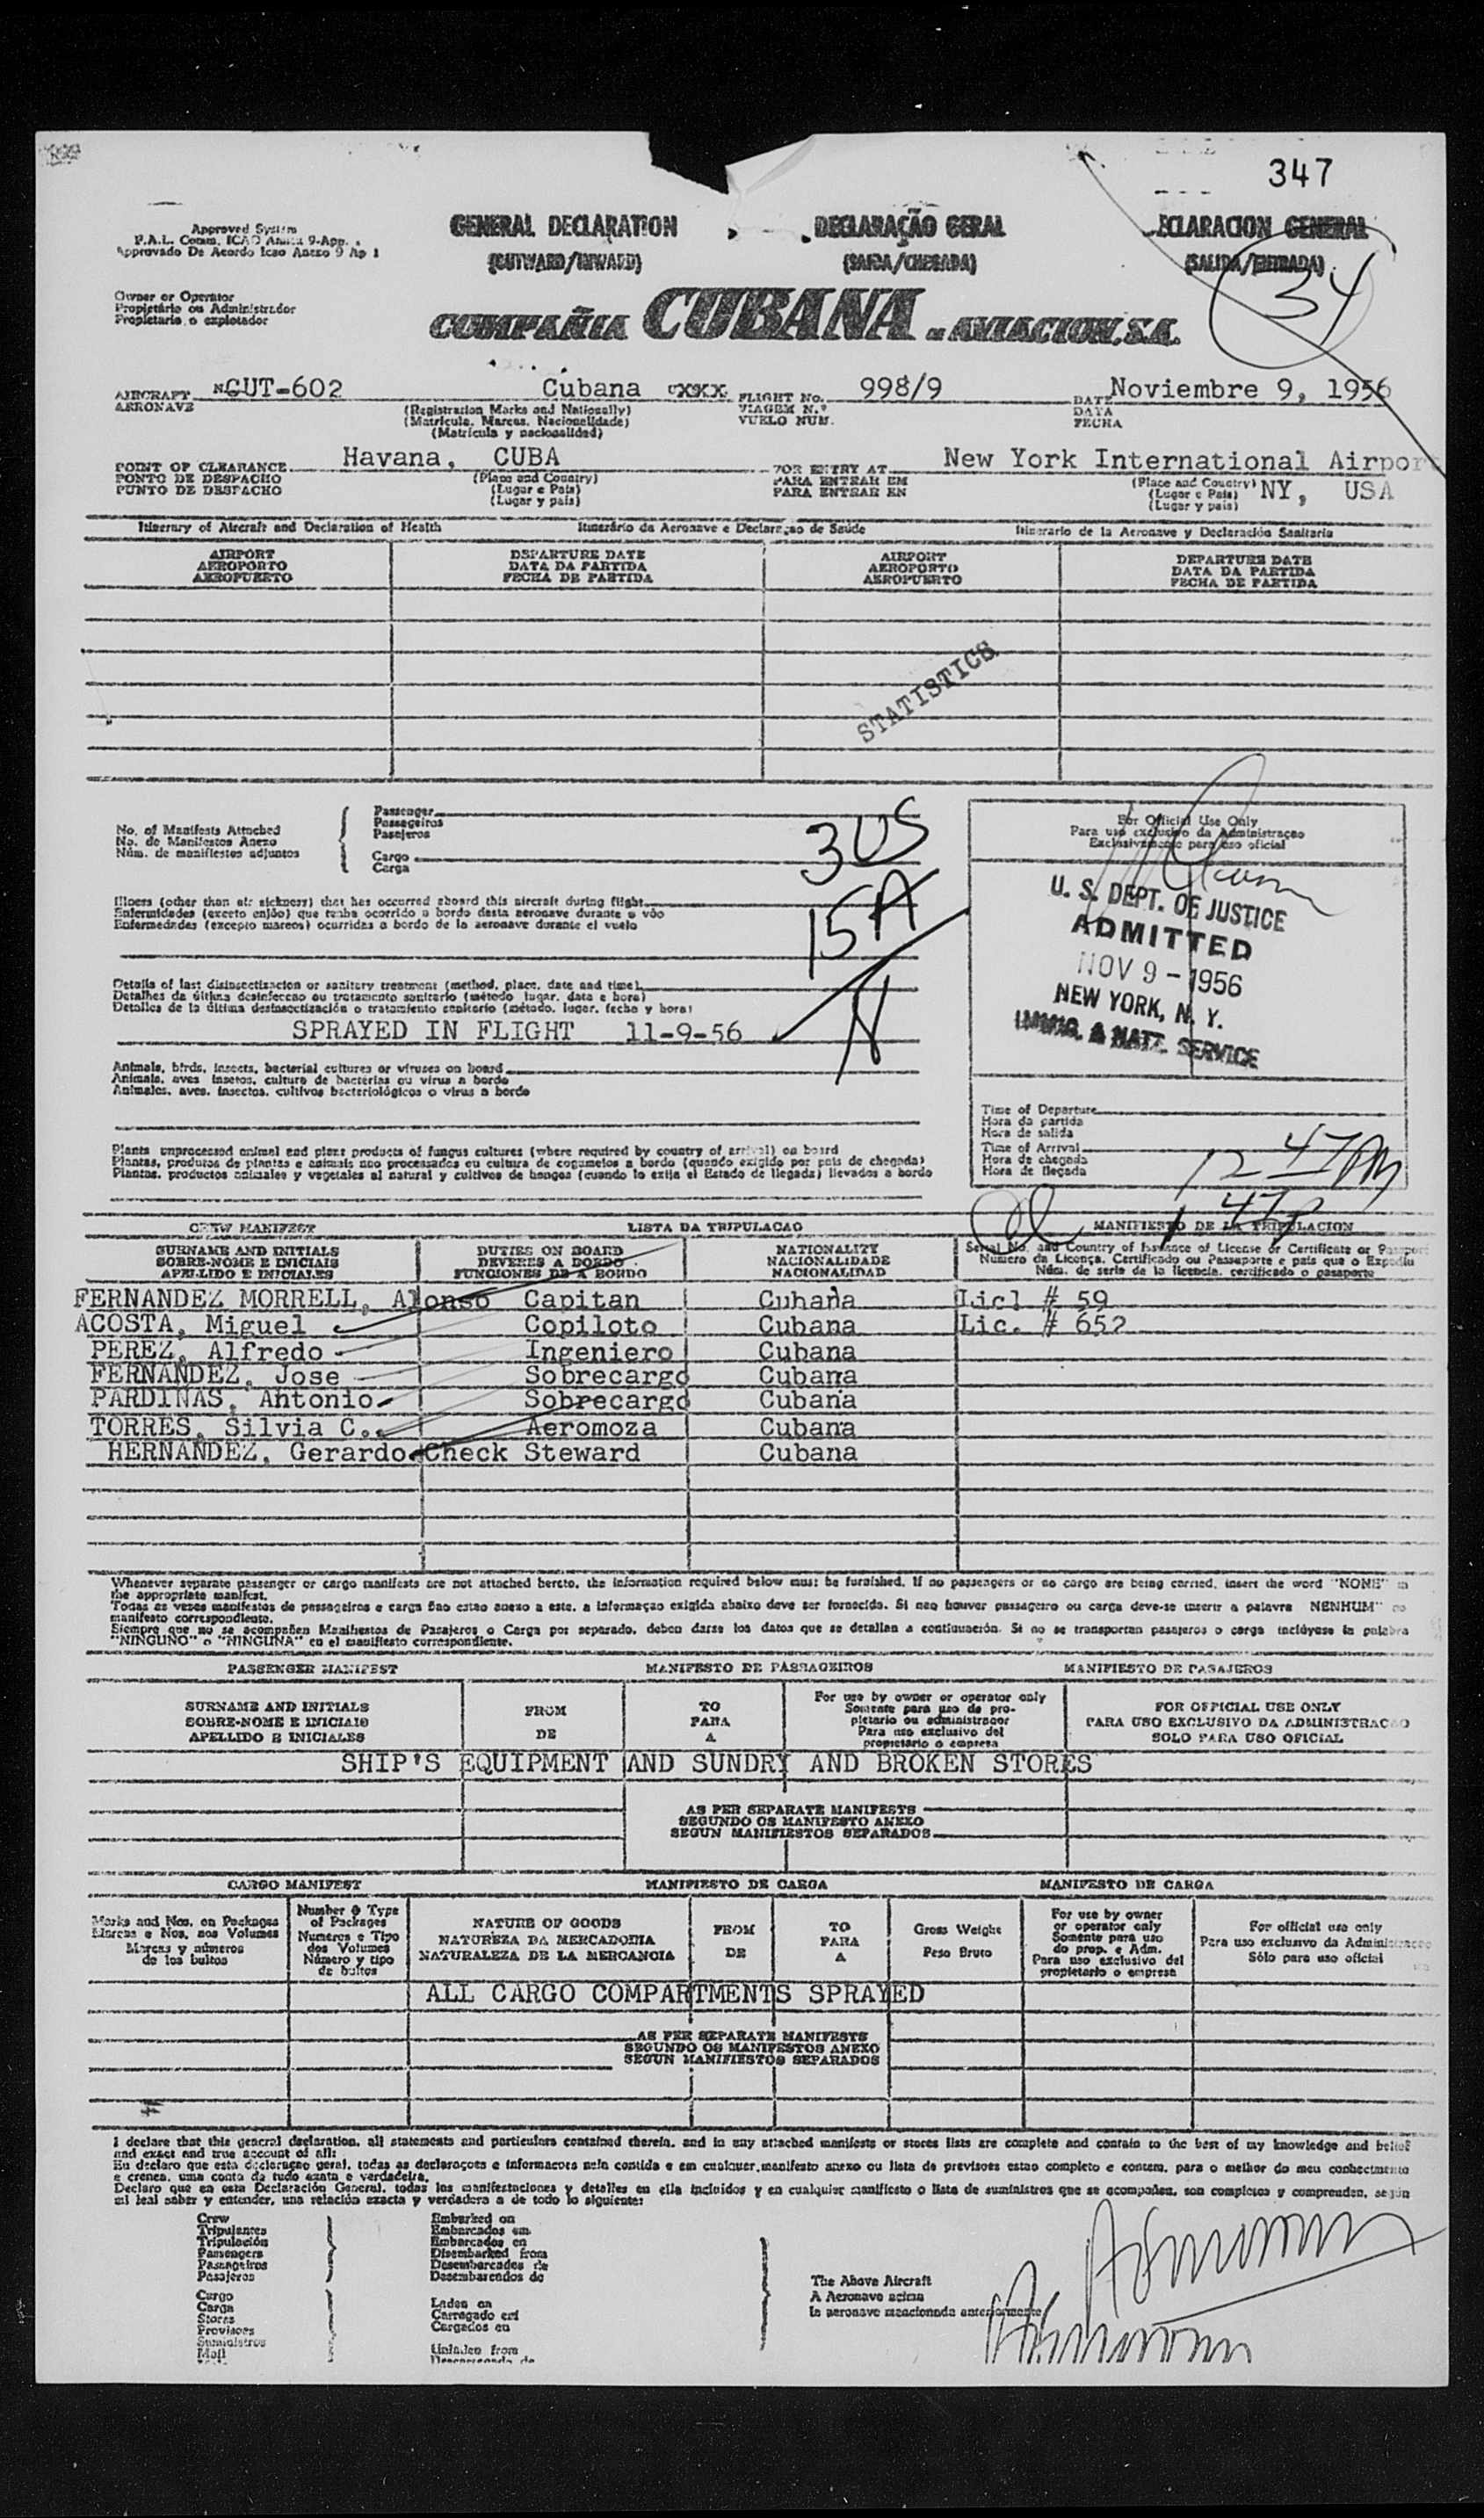 347
Approved System
P.A.L. Comm. ICAO Annex 9-App.
Approvado De Acordo Icao Anexo 9 Ap 1
GENERAL DECLARATION
(OUTWARD/INWARD)
DECLARAÇÃO GERAL
(SAIDA/CHEGADA)
ECLARACION GENERAL
(SALIDA/ENTRADA)
34
Owner or Operator
Propietário ou Administrador
Propietario o explotador
COMPAÑIA CUBANA de AVIACION, S.A.
AIRCRAFT
AERONAVE
GUT-602 Cubana
(Registration Marks and Nationally)
(Matricula, Marcas, Nacionalidade)
(Matricula y nacionalidad)
FLIGHT No. 998/9
VIAGEM N.º
VUELO NUM.
DATE Noviembre 9, 1956
DATA
FECHA
POINT OF CLEARANCE Havana, CUBA
PONTO DE DESPACHO
PUNTO DE DESPACHO
(Place and Country)
(Lugar e Pais)
(Lugar y pais)
FOR ENTRY AT New York International Airpor
PARA ENTRAR EM
PARA ENTRAR EN
(Place and Country) NY, USA
(Lugar e Pais)
(Lugar y pais)
Itinerary of Aircraft and Declaration of Health
Itinerário da Aeronave e Declaraçao de Saúde
Itinerario de la Aeronave y Declaración Sanitaria
AIRPORT
AEROPORTO
AEROPUERTO
DEPARTURE DATE
DATA DA PARTIDA
FECHA DE PARTIDA
AIRPORT
AEROPORTO
AEROPUERTO
DEPARTURE DATE
DATA DA PARTIDA
FECHA DE PARTIDA
STATISTICS
No. of Manifests Attached
No. de Manifestos Anexo
Núm. de manifiestos adjuntos
Passenger
Passageiros
Pasajeros
Cargo
Carga
3US
15A
For Official Use Only
Para uso exclusivo da Administraçao
Exclusivamente para uso oficial
U. S. DEPT. OF JUSTICE
ADMITTED
NOV 9 - 1956
NEW YORK, N. Y.
IMMIG. & NATZ. SERVICE
Illness (other than air sickness) that has occurred aboard this aircraft during flight
Enfermidades (exceto enjôo) que tenha ocorrido a bordo desta aeronave durante o vôo
Enfermedades (excepto mareos) ocurridas a bordo de la aeronave durante el vuelo
Details of last disinsectizacion or sanitary treatment (method, place, date and time)
Detalhes da última desinfeccao ou tratamento sanitario (método lugar, data e hora)
Detalles de la última desinsectización o tratamiento sanitario (método, lugar, fecha y hora)
SPRAYED IN FLIGHT 11-9-56
Animals, birds, insects, bacterial cultures or viruses on board
Animais, aves insetos, culture de bacterias ou virus a bordo
Animales, aves, insectos, cultivos bacteriológicos o virus a bordo
Plants unprocessed animal and plant products of fungus cultures (where required by country of arrival) on board
Plantas, produtos de plantas e animais nao processados ou cultura de cogumelos a bordo (quando exigido por pais de chegada)
Plantas, productos animales y vegetales al natural y cultivos de hongos (cuando lo exija el Estado de llegada) llevados a bordo
Time of Departure
Hora da partida
Hora de salida
Time of Arrival
Hora de chegada
Hora de llegada
12 47 PM
1 47 P
CREW MANIFEST
LISTA DA TRIPULACAO
MANIFIESTO DE LA TRIPULACION
SURNAME AND INITIALS
SOBRE-NOME E INICIAIS
APELLIDO E INICIALES
DUTIES ON BOARD
DEVERES A BORDO
FUNCIONES DE A BORDO
NATIONALITY
NACIONALIDADE
NACIONALIDAD
Serial No. and Country of Issuance of License or Certificate or Passport
Numero da Licença, Certificado ou Passaporte e pais que o Expediu
Núm. de serie de la licencia, certificado o pasaporte
FERNANDEZ MORRELL, Alonso Capitan Cubana Licl # 59
ACOSTA, Miguel Copiloto Cubana Lic. # 652
PEREZ, Alfredo Ingeniero Cubana
FERNANDEZ, Jose Sobrecargo Cubana
PARDINAS, Antonio Sobrecargo Cubana
TORRES, Silvia C. Aeromoza Cubana
HERNANDEZ, Gerardo Check Steward Cubana
Whenever separate passenger or cargo manifests are not attached hereto, the information required below must be furnished. If no passengers or no cargo are being carried, insert the word "NONE" in
the appropriate manifest.
Todas as vezes manifestos de passageiros e carga nao estao anexo a este, a informaçao exigida abaixo deve ser fornecida. Si nao houver passageiro ou carga deve-se inserir a palavra NENHUM" no
manifesto correspondiente.
Siempre que no se acompañen Manifiestos de Pasajeros o Carga por separado, deben darse los datos que se detallan a continuación. Si no se transportan pasajeros o carga inclúyase la palabra
"NINGUNO" o "NINGUNA" en el manifiesto correspondiente.
PASSENGER MANIFEST
MANIFESTO DE PASSAGEIROS
MANIFIESTO DE PASAJEROS
SURNAME AND INITIALS
SOBRE-NOME E INICIAIS
APELLIDO E INICIALES
FROM
DE
TO
PARA
A
For use by owner or operator only
Somente para uso de pro-
pietario ou administrador
Para uso exclusivo del
propietario o empresa
FOR OFFICIAL USE ONLY
PARA USO EXCLUSIVO DA ADMINISTRACAO
SOLO PARA USO OFICIAL
SHIP'S EQUIPMENT AND SUNDRY AND BROKEN STORES
AS PER SEPARATE MANIFESTS
SEGUNDO OS MANIFESTO ANEXO
SEGUN MANIFIESTOS SEPARADOS
CARGO MANIFEST
MANIFIESTO DE CARGA
MANIFESTO DE CARGA
Marks and Nos. on Packages
Marcas e Nos. aos Volumes
Marcas y números
de los bultos
Number & Type
of Packages
Numeros e Tipo
dos Volumes
Número y tipo
de bultos
NATURE OF GOODS
NATUREZA DA MERCADORIA
NATURALEZA DE LA MERCANCIA
FROM
DE
TO
PARA
A
Gross Weight
Peso Bruto
For use by owner
or operator only
Somente para uso
do prop. e Adm.
Para uso exclusivo del
propietario o empresa
For official use only
Para uso exclusivo da Administracao
Sólo para uso oficial
ALL CARGO COMPARTMENTS SPRAYED
AS PER SEPARATE MANIFESTS
SEGUNDO OS MANIFESTOS ANEXO
SEGUN MANIFIESTOS SEPARADOS
I declare that this general declaration, all statements and particulars contained therein, and in any attached manifests or stores lists are complete and contain to the best of my knowledge and belief
and exact and true account of all:
Eu declaro que esta declaraçao geral, todas as declaraçoes e informacoes nela contida e em cualquer manifesto anexo ou lista de previsoes estao completo e contem, para o melhor do meu conhecimento
e crenca, uma conta de tudo exata e verdadeira.
Declaro que en esta Declaración General, todas las manifestaciones y detalles en ella incluidos y en cualquier manifiesto o lista de suministros que se acompañen, son completos y comprenden, según
mi leal saber y entender, una relación exacta y verdadera a de todo lo siguiente:
Crew
Tripulantes
Tripulación
Passengers
Passageiros
Pasajeros
Cargo
Carga
Stores
Provisoes
Suministros
Mail
Embarked on
Embarcados em
Embarcados en
Disembarked from
Desembarcados de
Desembarcados de
Laden on
Carregado em
Cargados en
Unladen from
The Above Aircraft
A Aeronave acima
la aeronave mencionada anteriormente